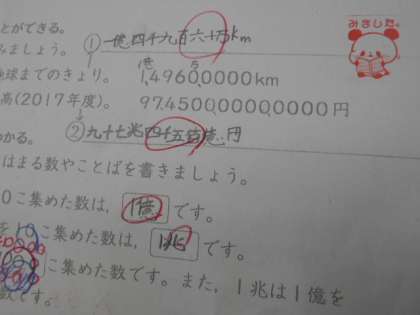 とができる。
みましょう。 ① 一億四千九百六十万km
みました。
球までのきょり。 1,4960,0000km
高(2017年度)。 97,4500,0000,0000円
② 九十七兆四千五百億円
かる。
はまる数やことばを書きましょう。
0こ集めた数は、 1億 です。
を10こ集めた数は、 1兆 です。
こ集めた数です。また、1兆は1億を
数です。